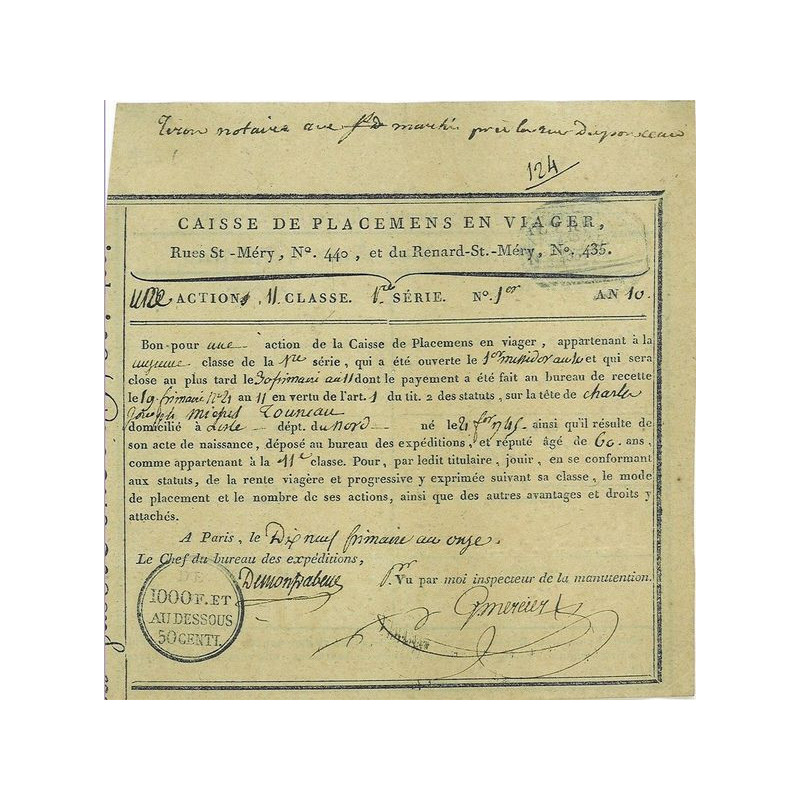 notaire
124
CAISSE DE PLACEMENS EN VIAGER,
Rues St-Méry, N°. 440, et du Renard-St.-Méry, N°. 435.
une ACTION, 11 CLASSE. 1re SÉRIE. N°. 1er AN 10.
Bon pour une action de la Caisse de Placemens en viager, appartenant à la
onzieme classe de la 1re série, qui a été ouverte le 1er messidor an 10 et qui sera
close au plus tard le 30 frimaire an 11 dont le payement a été fait au bureau de recette
le 19 frimaire an 11 en vertu de l'art. 1 du tit. 2 des statuts, sur la tête de charles
joseph michel Touneau
domicilié à Lisle dépt. du nord né le 21 ainsi qu'il résulte de
son acte de naissance, déposé au bureau des expéditions, et réputé âgé de 60 ans,
comme appartenant à la 11e classe. Pour, par ledit titulaire, jouir, en se conformant
aux statuts, de la rente viagère et progressive y exprimée suivant sa classe, le mode
de placement et le nombre de ses actions, ainsi que des autres avantages et droits y
attachés.
A Paris, le Dix neuf frimaire an onze.
Le Chef du bureau des expéditions,
pr Vu par moi inspecteur de la manutention.
Mercier
DE
1000 F. ET
AU DESSOUS
50 CENTI.